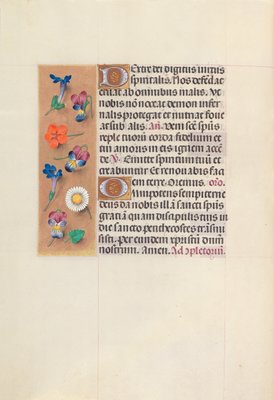 Dextre dei digitus virtus
spiritalis. Nos defendat
eruat ab omnibus malis. Ut
nobis non noceat demon infer
nalis protegat et nutriat foue
at sub alis. An. Veni sctūs spūs
reple tuorū corda fidelium et
tui amoris in eis ignem accē
de. V. Emitte spiritum tuū et
creabuntur Et renouabis faci
em terre. Oremus. Oro.
Omnipotens sempiterne
deus da nobis illā sancti spūs
gratiā quam discipulis tuis in
die sancto penthecostes trāsmi
sisti. Per eundem xpristū dnm̄
nostrum. Amen. Ad cōpletoriū.